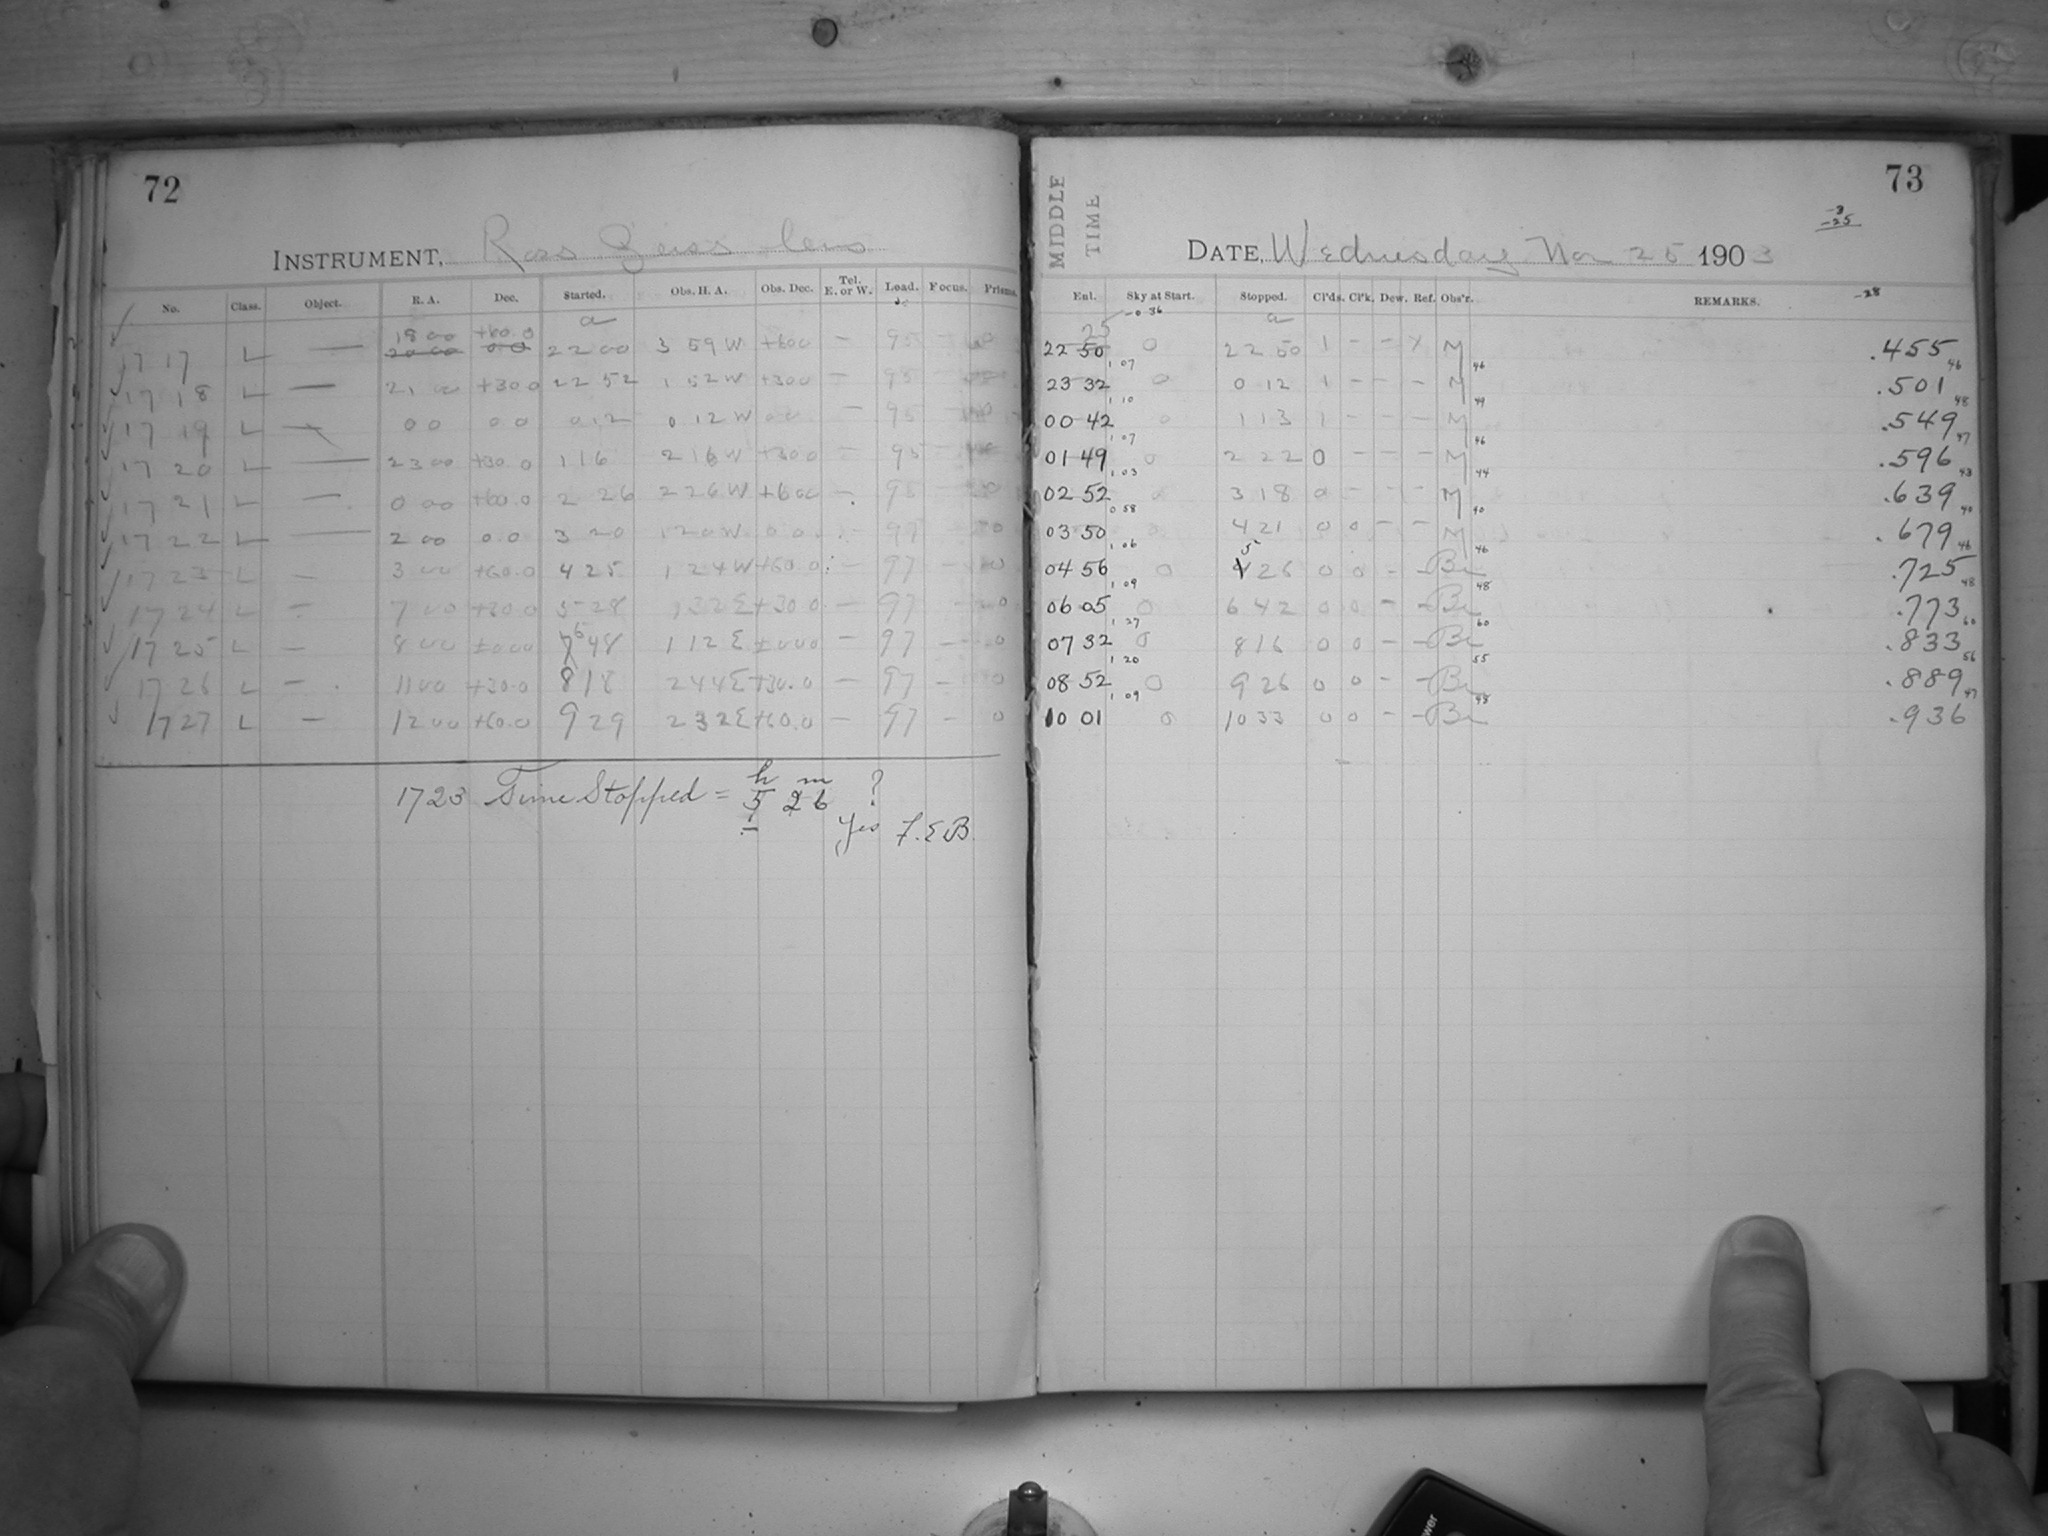 72
INSTRUMENT, Ross Zeiss lens
No. Class. Object. R. A. Dec. Started. Obs. H. A. Obs. Dec. Tel. E. or W. Load. Focus. Prisms.
a
18 00 +60.0
1717 L — 20 00 0.0 22 00 3 59 W +600 — 95 —
1718 L — 21 00 +30 0 22 52 1 52 W +300 — 95 —
1719 L — 0 0 0 0 0 12 0 12 W 0 0 — 95 —
1720 L — 23 00 +30.0 1 16 2 16 W +300 — 95 —
1721 L — 0 00 +60.0 2 26 2 26 W +600 — 95 —
1722 L — 2 00 0.0 3 20 1 20 W 0 0 — 97 —
1723 L — 3 00 +60.0 4 25 1 24 W +60.0 — 97 — 0
1724 L — 7 00 +30.0 5 28 1 32 E +30 0 — 97 — 0
1725 L — 8 00 +000 7 6 48 1 12 E +000 — 97 — 0
1726 L — 11 00 +30.0 8 18 2 44 E +30.0 — 97 — 0
1727 L — 12 00 +60.0 9 29 2 32 E +60.0 — 97 — 0
1723 Time Stopped = 5 h 26 m ?
Yes F.E.B.
73
MIDDLE TIME
-3
-25
DATE, Wednesday Nov 25 1903
Enl. Sky at Start. Stopped. Cl'ds. Cl'k. Dew. Ref. Obs'r. REMARKS. -28
25 -0 36 a
22 50 0 22 50 1 - - X M .455
1 07 46 46
23 32 0 0 12 1 - - - M .501
1 10 49 48
00 42 0 1 13 1 - - - M .549
1 07 46 47
01 49 0 2 22 0 - - - M .596
1 03 44 43
02 52 0 3 18 0 - - - M .639
0 58 40 40
03 50 0 4 21 0 0 - - M .679
1 06 46 46
5
04 56 0 4 26 0 0 - - Br .725
1 09 48 48
06 05 0 6 42 0 0 - - Br .773
1 27 60 60
07 32 0 8 16 0 0 - - Br .833
1 20 55 56
08 52 0 9 26 0 0 - - Br .889
1 09 48 47
10 01 0 10 33 0 0 - - Br .936
wer